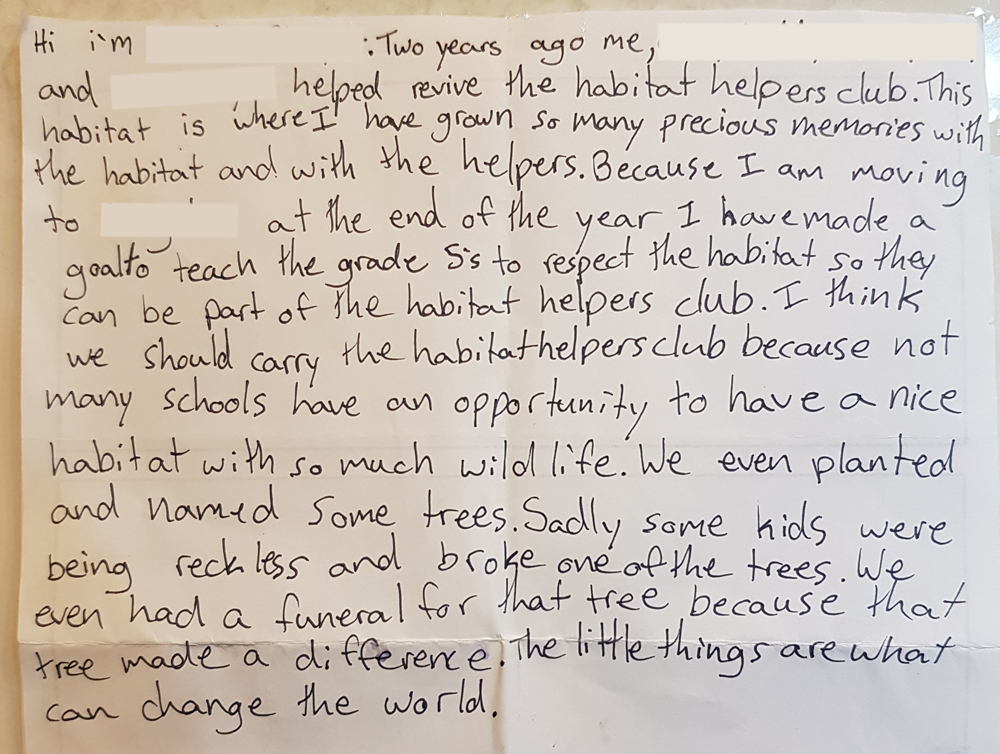 Hi i'm : Two years ago me,
and helped revive the habitat helpers club. This
habitat is where I have grown so many precious memories with
the habitat and with the helpers. Because I am moving
to at the end of the year I have made a
goal to teach the grade 5's to respect the habitat so they
can be part of the habitat helpers club. I think
we should carry the habitat helpers club because not
many schools have an opportunity to have a nice
habitat with so much wild life. We even planted
and named some trees. Sadly some kids were
being reckless and broke one of the trees. We
even had a funeral for that tree because that
tree made a difference. The little things are what
can change the world.